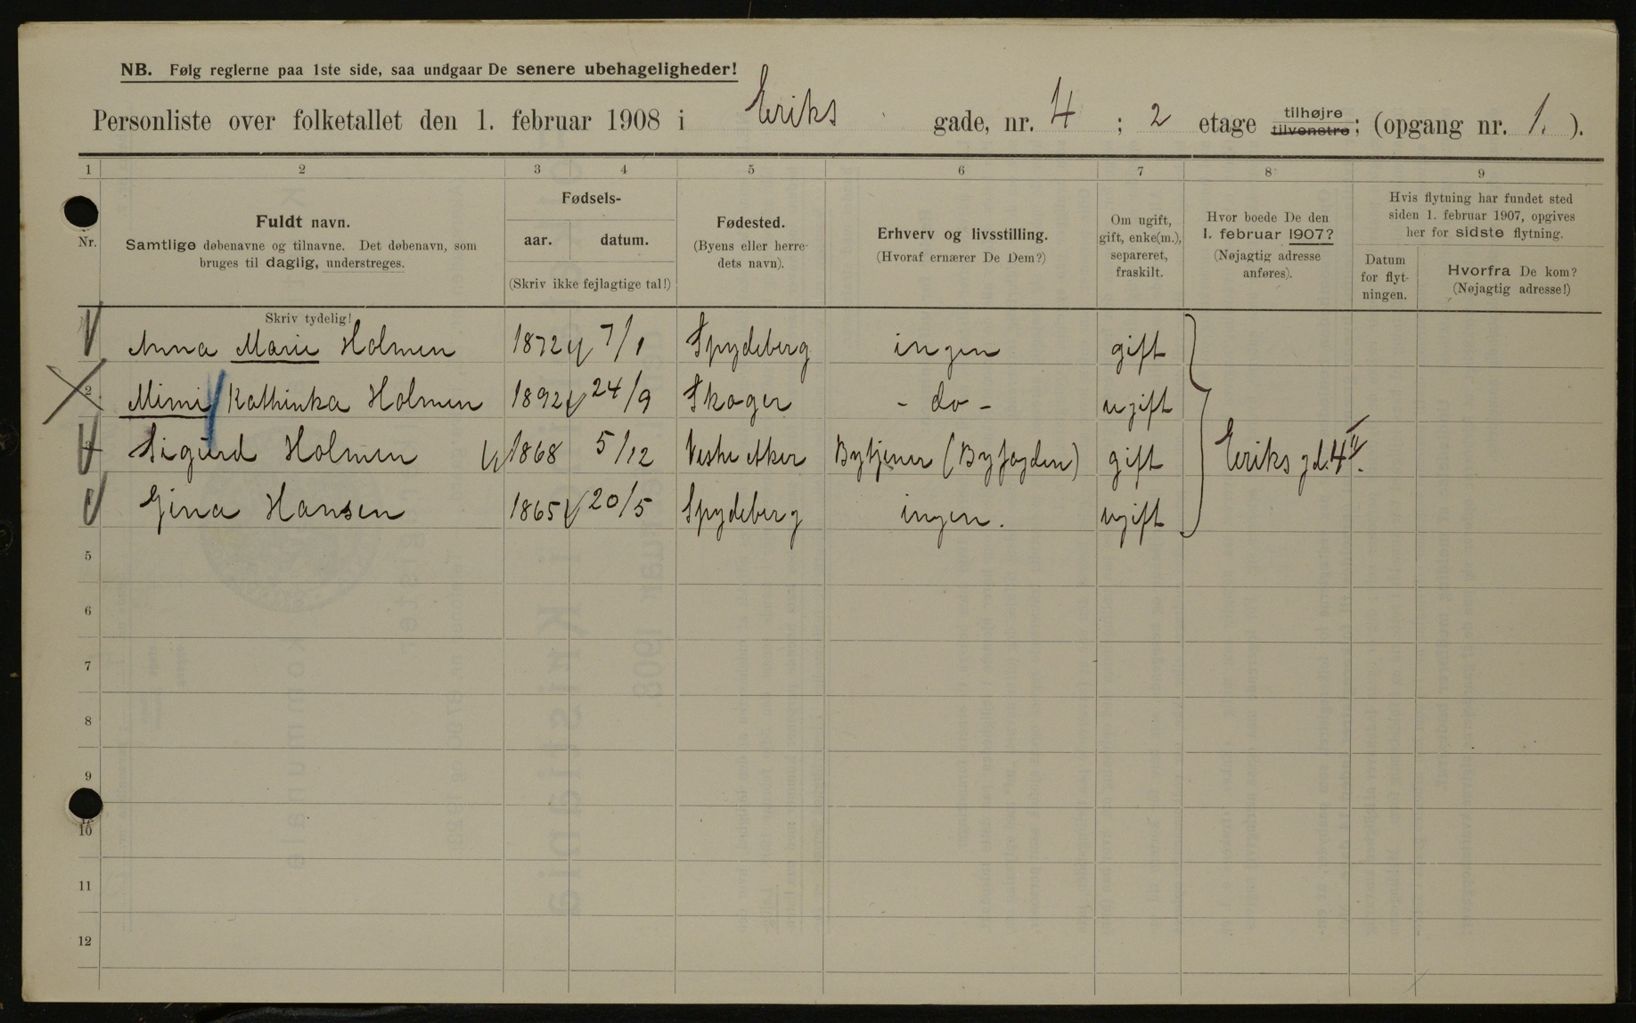 NB. Følg reglerne paa 1ste side, saa undgaar De senere ubehageligheder!
Personliste over folketallet den 1. februar 1908 i Eriks gade, nr. 4 ; 2 etage tilhøjre tilvenstre; (opgang nr. 1. ).
1 2 3 4 5 6 7 8 9
Nr.
Fuldt navn.
Samtlige døbenavne og tilnavne. Det døbenavn, som
bruges til daglig, understreges.
Fødsels-
aar. datum.
(Skriv ikke fejlagtige tal!)
Fødested.
(Byens eller herre-
dets navn).
Erhverv og livsstilling.
(Hvoraf ernærer De Dem?)
Om ugift,
gift, enke(m.),
separeret,
fraskilt.
Hvor boede De den
1. februar 1907?
(Nøjagtig adresse
anføres).
Hvis flytning har fundet sted
siden 1. februar 1907, opgives
her for sidste flytning.
Datum
for flyt-
ningen.
Hvorfra De kom?
(Nøjagtig adresse!)
Skriv tydelig!
Anna Marie Holmen 1872 7/1 Spydeberg ingen gift
2 Mimi Kathinka Holmen 1892 24/9 Skoger - do - ugift
3 Sigurd Holmen 1868 5/12 Vestre Aker Bytjener (Byfogden) gift Eriks gd. 4 II.
Gina Hansen 1865 20/5 Spydeberg ingen. ugift
5
6
7
8
9
10
11
12